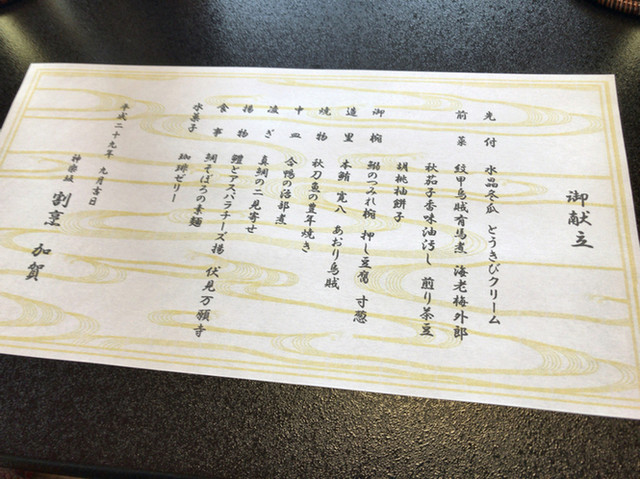 御献立
先付 水晶冬瓜 とうきびクリーム
前菜 紋甲烏賊有馬煮 海老梅外郎
秋茄子香味油汚し 煎り茶豆
胡桃柚餅子
御椀 鰯のつみれ椀 押し豆腐 寸葱
造里 本鮪 寛八 あおり烏賊
焼物 秋刀魚の豊年焼き
中皿 合鴨の治部煮
凌ぎ 真鯛の二見寄せ
揚物 鱧とアスパラチーズ揚 伏見万願寺
食事 鯛そぼろの素麺
水菓子 珈琲ゼリー
平成二十九年 九月吉日
神楽坂 割烹 加賀